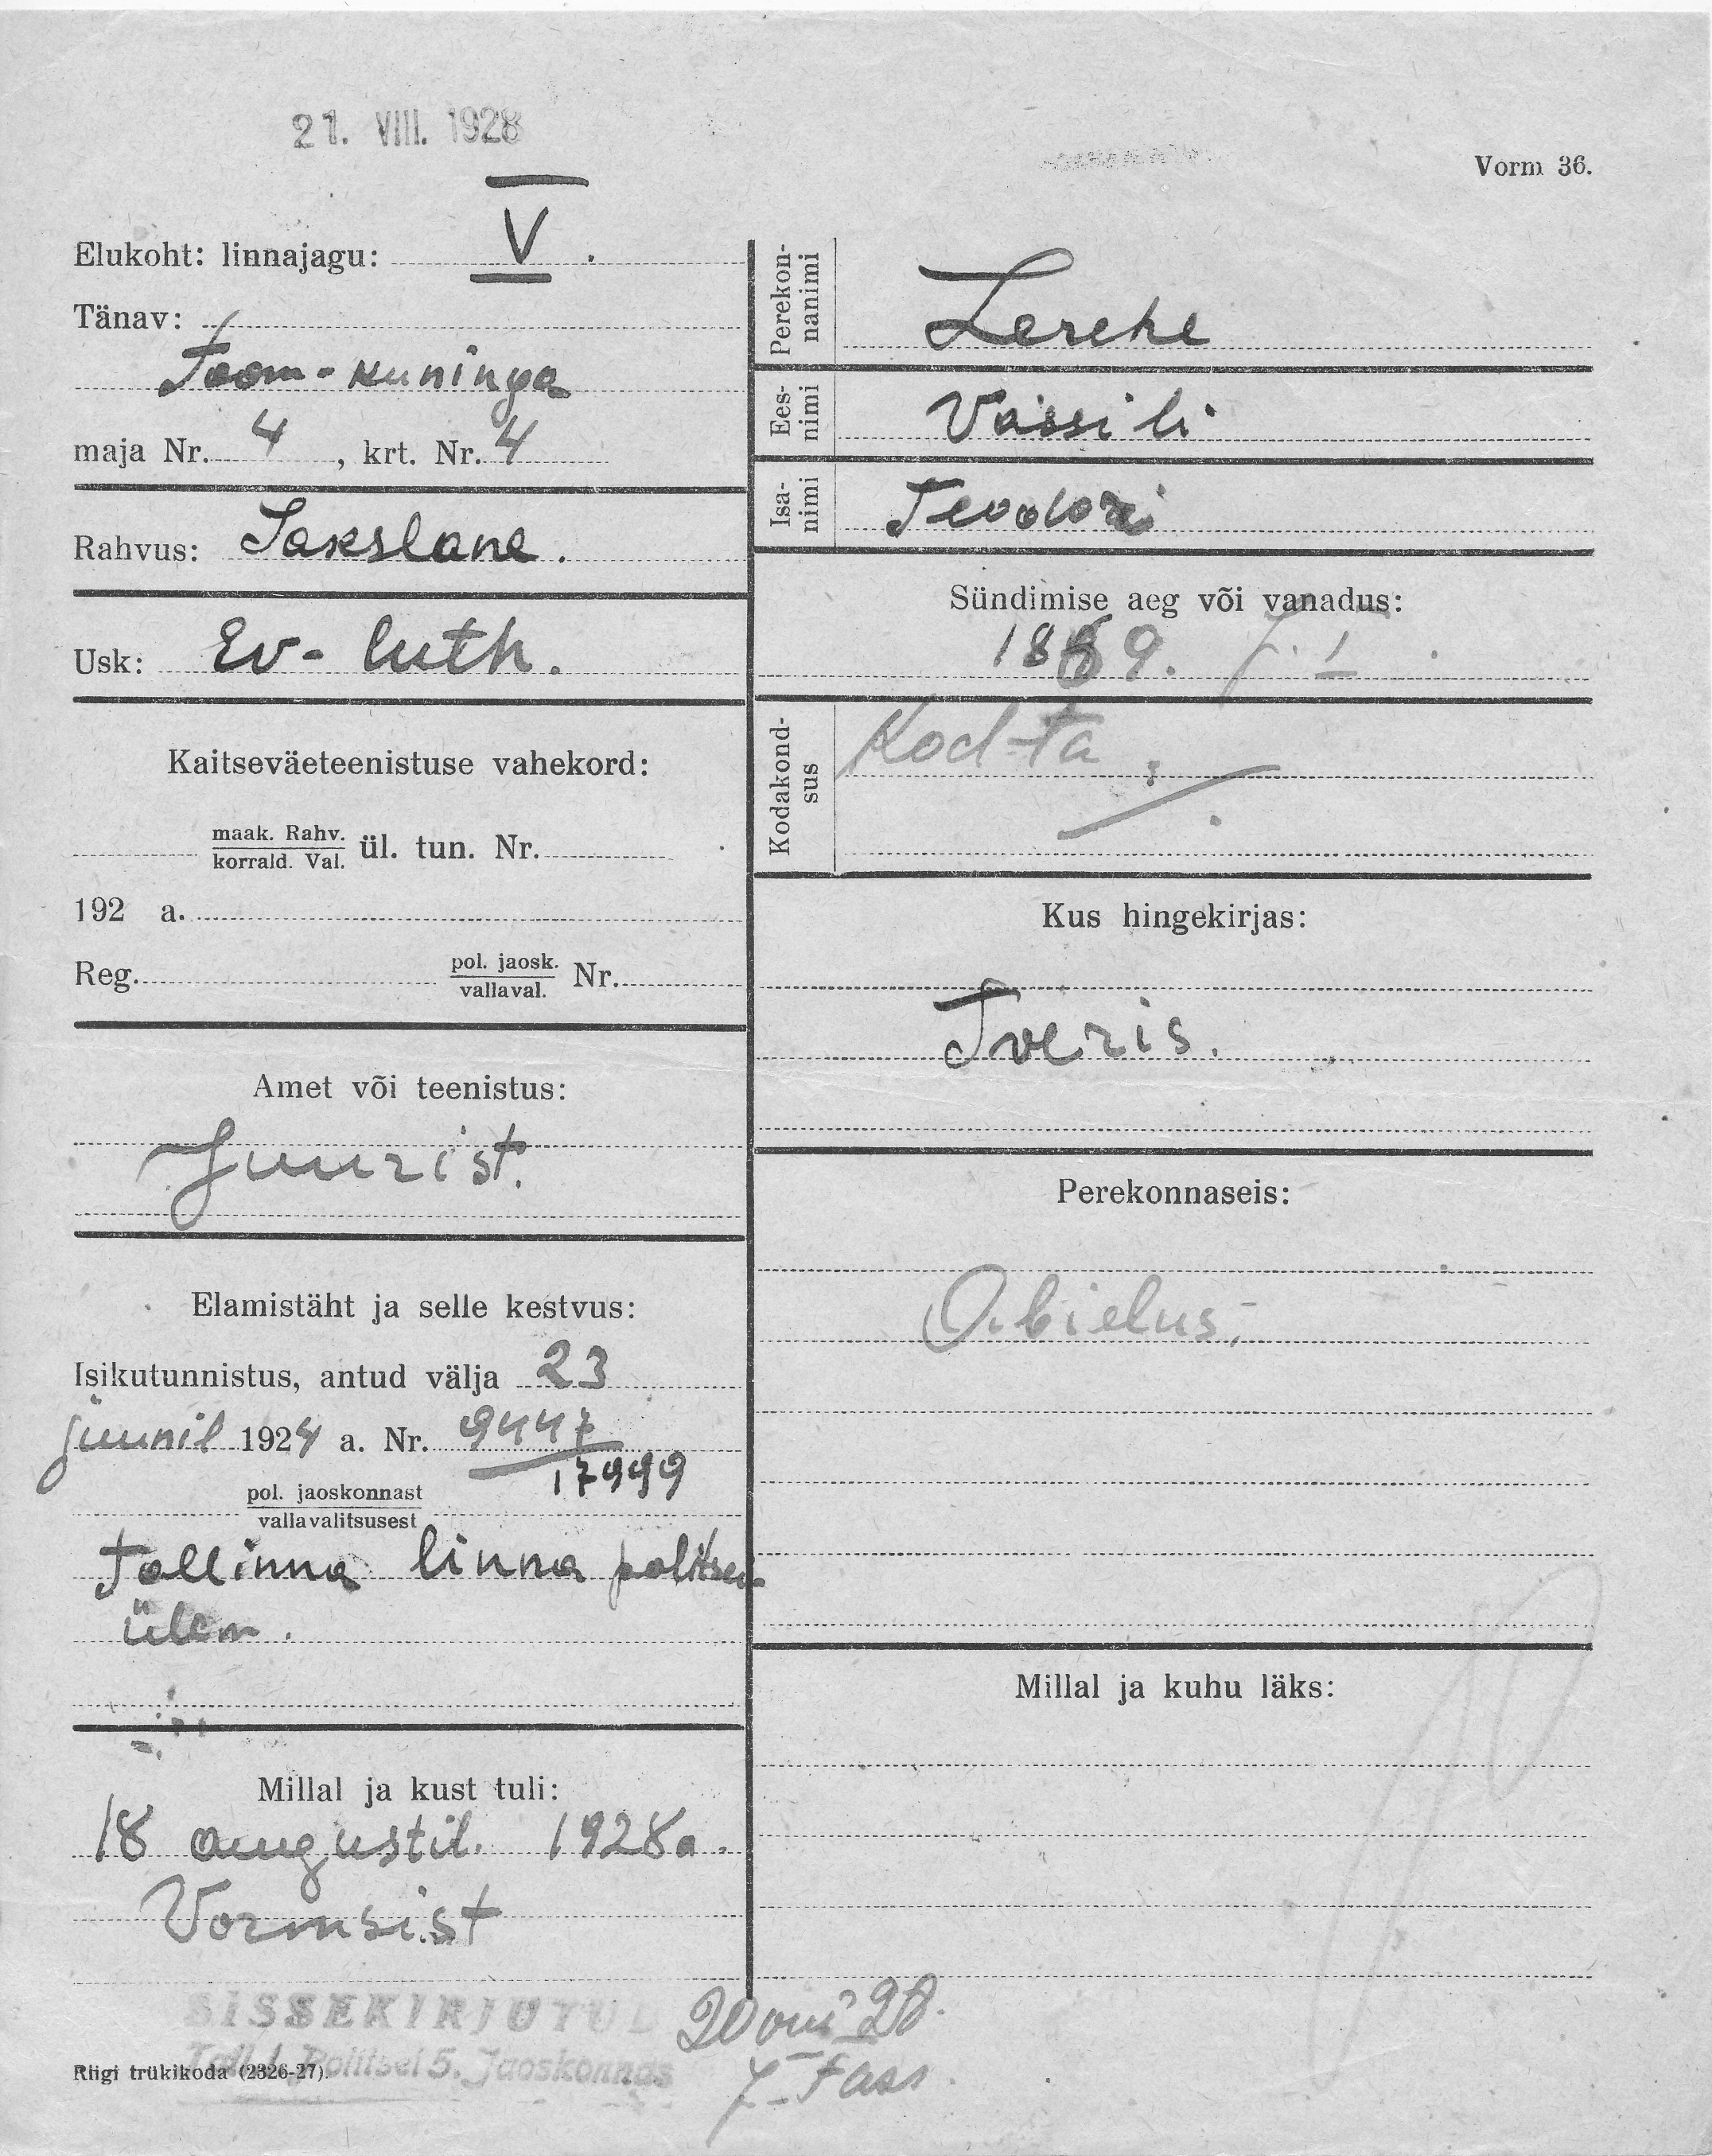 21. VIII. 1928
Vorm 36.
Elukoht: linnajagu: V.
Tänav:
Toom-kuninga
maja Nr. 4, krt. Nr. 4
Rahvus: Sakslane.
Usk: Ev-luth.
Kaitseväeteenistuse vahekord:
maak. Rahv.
korrald. Val.
ül. tun. Nr.
192 a.
Reg. pol. jaosk. Nr.
vallaval.
Amet või teenistus:
Juurist.
Elamistäht ja selle kestvus:
Isikutunnistus, antud välja 23
juunil 1924 a. Nr. 9447
17999
pol. jaoskonnast
vallavalitsusest
Tallinna linna politsei-
ülem.
Millal ja kust tuli:
18 augustil. 1928 a.
Vormsist
Perekon-
nanimi
Lerche
Ees-
nimi
Vassili
Isa-
nimi
Teodori
Sündimise aeg või vanadus:
1869. 7. I
Kodakond-
sus
Kod-ta.
Kus hingekirjas:
Tveris.
Perekonnaseis:
Abielus.
Millal ja kuhu läks:
SISSEKIRJUTUD
Tall. l. Politsei 5. Jaoskonnas
Riigi trükikoda (2326-27).